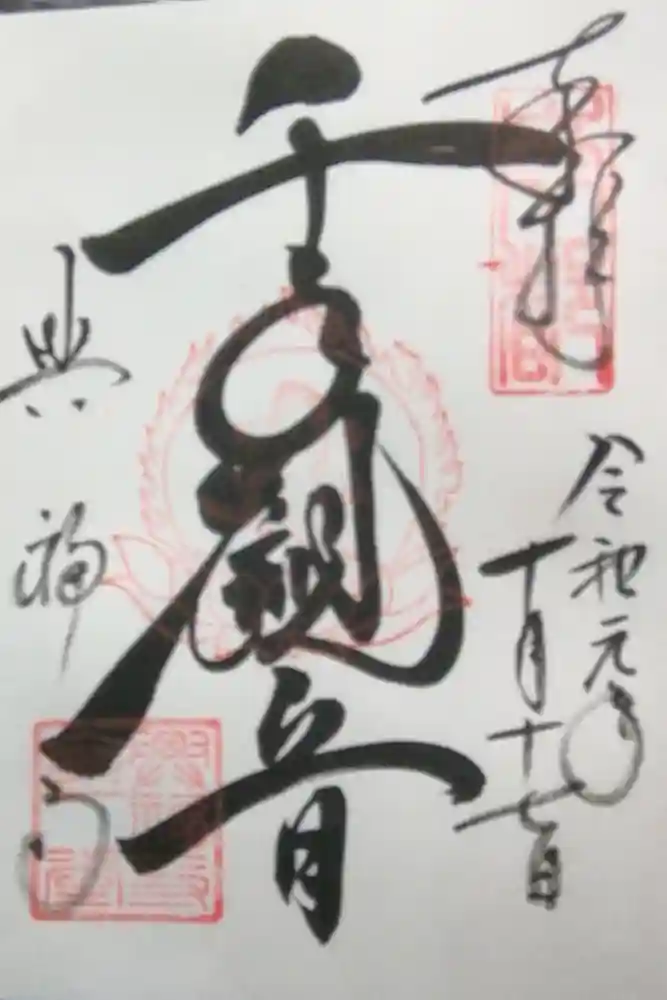 奉拝
令和元年
十月十七日
千手觀音
興福寺